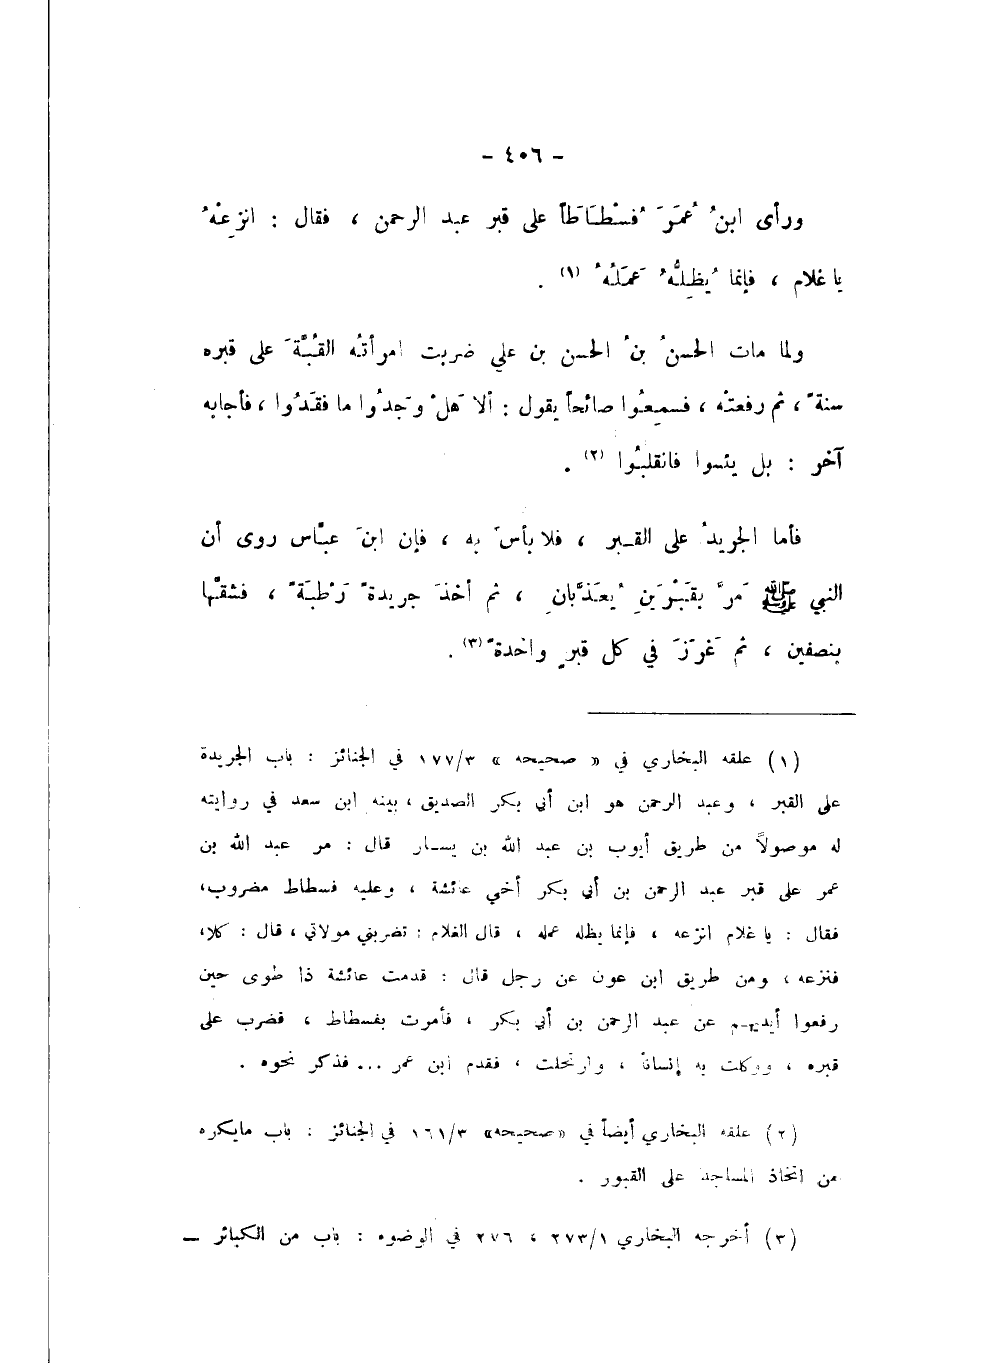 - ٤٠٦ -
ورأى ابنُ عُمَرَ فُسْطَاطاً على قبر عبد الرحمن ، فقال : انزِعْهُ
يا غلام ، فإنما يُظِلُّهُ عَمَلُهُ (١) .
ولما مات الحسنُ بنُ الحسن بن علي ضربت امرأتُه القُبَّةَ على قبره
سنةً ، ثم رفعتْه ، فسمِعُوا صائحاً يقول : ألا هَلْ وَجدُوا ما فقَدُوا ، فأجابه
آخر : بل يئسوا فانقلبُوا (٢) .
فأما الجريدُ على القـبر ، فلا بأسَ به ، فإن ابنَ عبَّاس روى أن
النبي ﷺ مَرَّ بقَبْرَينِ يُعَذَّبانِ ، ثم أخذَ جريدةً رَطْبَةً ، فشقَّها
بنصفين ، ثم غَرَزَ في كل قبرٍ واحدةً (٣) .
(١) علقه البخاري في « صحيحه » ١٧٧/٣ في الجنائز : باب الجريدة
على القبر ، وعبد الرحمن هو ابن أبي بكر الصديق ، بينه ابن سعد في روايته
له موصولاً من طريق أيوب بن عبد الله بن يسـار قال : مر عبد الله بن
عمر على قبر عبد الرحمن بن أبي بكر أخي عائشة ، وعليه فسطاط مضروب،
فقال : يا غلام انزعه ، فإنما يظله عمله ، قال الغلام : تضربني مولاتي ، قال : كلا،
فنزعه ، ومن طريق ابن عون عن رجل قال : قدمت عائشة ذا طوى حين
رفعوا أيديهـم عن عبد الرحمن بن أبي بكر ، فأمرت بفسطاط ، فضرب على
قبره ، ووكلت به إنساناً ، وارتحلت ، فقدم ابن عمر ... فذكر نحوه .
(٢) علقه البخاري أيضاً في «صحيحه» ١٦١/٣ في الجنائز : باب مايكره
من اتخاذ المساجد على القبور .
(٣) أخرجه البخاري ٢٧٣/١ ، ٢٧٦ في الوضوء : باب من الكبائر —